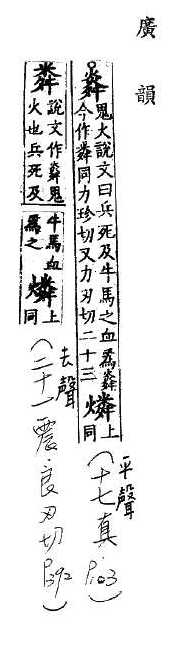 廣韻
粦 鬼火說文曰兵死及牛馬之血爲粦
今作粦同力珍切又力刃切二十三 燐 上同
(平聲
十七真 P.103)
粦 說文作粦鬼
火也兵死及
牛馬血
爲之 燐 上同
(去聲
二十一震·良刃切 P392)